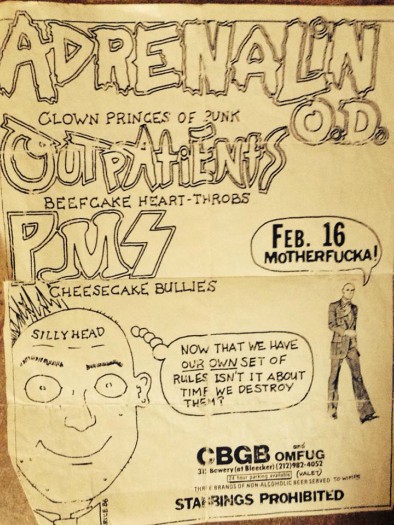 ADRENALIN
O.D.
CLOWN PRINCES OF PUNK
OUTPATIENTS
BEEFCAKE HEART-THROBS
PMS
FEB. 16
MOTHERFUCKA!
CHEESECAKE BULLIES
SILLYHEAD
NOW THAT WE HAVE
OUR OWN SET OF
RULES ISN'T IT ABOUT
TIME WE DESTROY
THEM?
CBGB and OMFUG
315 Bowery (at Bleecker) (212) 982-4052
24 hour parking available (VALET)
THREE BRANDS OF NON-ALCOHOLIC BEER SERVED TO WIMPS
STABBINGS PROHIBITED